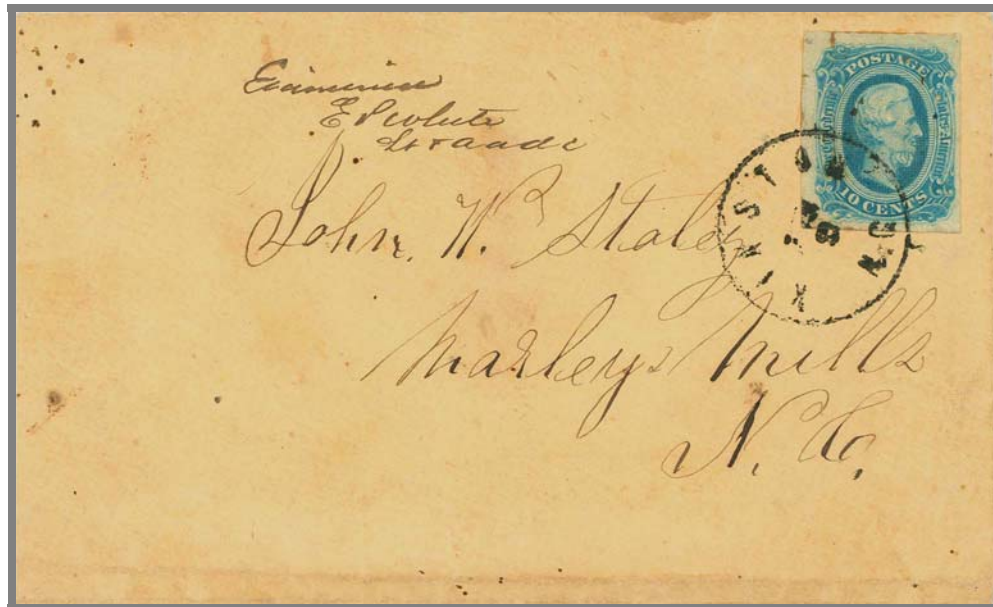 Examined
POSTAGE
Confederate
10 CENTS
KINSTON N.C.
John W. Staley
Marleys Mills
N. Co,